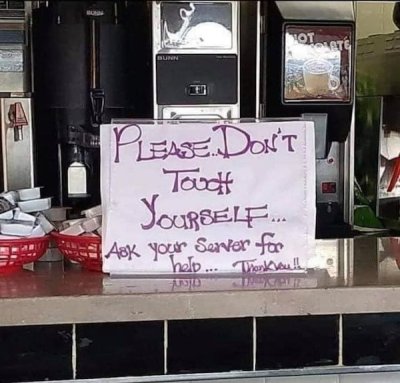 BUNN
BUNN
HOT
PLEASE..DON'T
TOUCH
YOURSELF...
ASK your Server for
help... Thank You!!